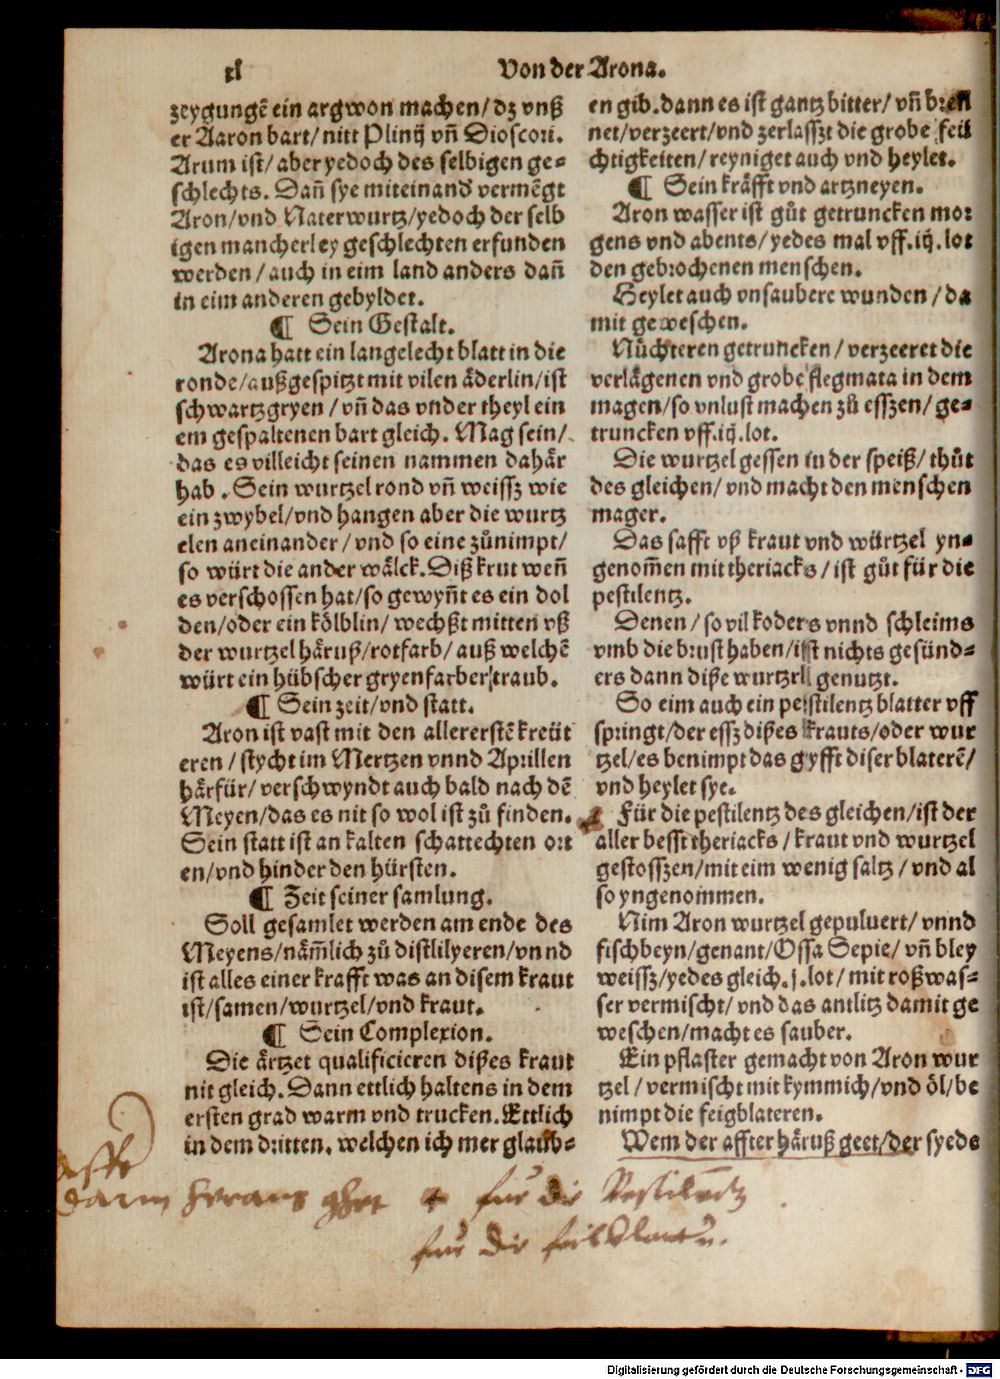 xl
Von der Arona.
zeygungē ein argwon machen/ dz vnß
er Aaron bart/ nitt Plinij vn̄ Dioscori.
Arum ist/ aber yedoch des selbigen ge⸗
schlechts. Dañ sye miteinand vermēgt
Aron/ vnd Naterwurtz/ yedoch der selb
igen mancherley geschlechten erfunden
werden / auch in eim land anders dañ
in eim anderen gebyldet.
¶ Sein Gestalt.
Arona hatt ein langelecht blatt in die
ronde/ außgespitzt mit vilen äderlin/ ist
schwartzgryen / vn̄ das vnder theyl ein
em gespaltenen bart gleich. Mag sein/
das es villeicht seinen nammen dahär
hab . Sein wurtzel rond vn̄ weissz wie
ein zwybel/ vnd hangen aber die wurtz
elen aneinander / vnd so eine zůnimpt/
so würt die ander wälck. Diß krut weñ
es verschossen hat/ so gewyn̄t es ein dol
den/ oder ein kölblin/ wechßt mitten vß
der wurtzel häruß/ rotfarb/ auß welchē
würt ein hübscher gryenfarber traub.
¶ Sein zeit/ vnd statt.
Aron ist vast mit den allererstē kreüt
eren / stycht im Mertzen vnnd Aprillen
härfür/ verschwyndt auch bald nach dē
Meyen/ das es nit so wol ist zů finden.
Sein statt ist an kalten schattechten ort
en/ vnd hinder den hürsten.
¶ Zeit seiner samlung.
Soll gesamlet werden am ende des
Meyens/ näm̄lich zů distlilyeren/ vnnd
ist alles einer krafft was an disem kraut
ist/ samen/ wurtzel/ vnd kraut.
¶ Sein Complexion.
Die ärtzet qualificieren dißes kraut
nit gleich. Dann ettlich haltens in dem
ersten grad warm vnd trucken. Ettlich
in dem dritten. welchen ich mer glaub⸗
en gib. dann es ist gantz bitter/ vn̄ bren
net/ verzeert/ vnd zerlasszt die grobe feü
chtigkeiten/ reyniget auch vnd heylet.
¶ Sein kräfft vnd artzneyen.
Aron wasser ist gůt getruncken mor
gens vnd abents/ yedes mal vff .iij. lot
den gebrochenen menschen.
Heylet auch vnsaubere wunden / da
mit geweschen.
Nůchteren getruncken / verzeeret die
verlägenen vnd grobe flegmata in dem
magen/ so vnlust machen zů esszen/ ge⸗
truncken vff .iij. lot.
Die wurtzel gessen in der speiß/ thůt
des gleichen/ vnd macht den menschen
mager.
Das safft vß kraut vnd würtzel yn⸗
genom̄en mit theriacks / ist gůt für die
pestilentz.
Denen / so vil koders vnnd schleims
vmb die brust haben/ ist nichts gesünd⸗
ers dann diße wurtzel genutzt.
So eim auch ein pestilentz blatter vff
springt/ der essz dißes krauts/ oder wur
tzel/ es benimpt das gyfft diser blaterē/
vnd heylet sye.
Für die pestilentz des gleichen/ ist der
aller besst theriacks / kraut vnd wurtzel
gestosszen/ mit eim wenig saltz / vnd al
so yngenommen.
Nim Aron wurtzel gepuluert/ vnnd
fischbeyn/ genant/ Ossa Sepie/ vn̄ bley
weissz/ yedes gleich .j. lot/ mit roßwas⸗
ser vermischt/ vnd das antlitz damit ge
weschen/ macht es sauber.
Ein pflaster gemacht von Aron wur
tzel / vermischt mit kymmich/ vnd öl/ be
nimpt die feigblateren.
Wem der affter häruß geet/ der syede
darm heraus ghet
für die Pestilentz
für die
Digitalisierung gefördert durch die Deutsche Forschungsgemeinschaft - DFG